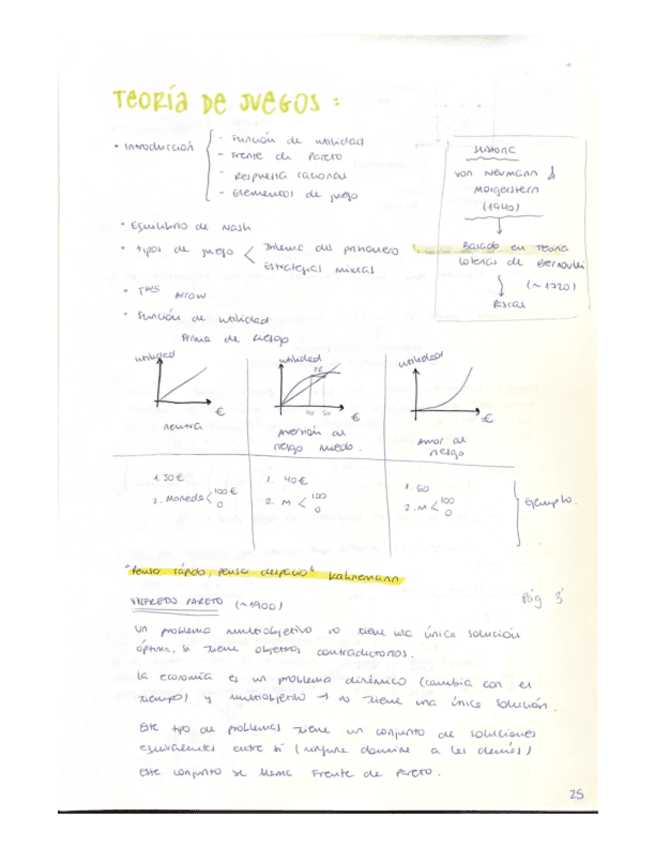 TEORÍA DE JUEGOS :
• Introducción
- Función de utilidad
- Frente de Pareto
- Respuesta racional
- Elementos de juego
• Equilibrio de Nash
• Tipos de juego < Dilema del prisionero
Estrategias mixtas
• TMS Arrow
• Función de utilidad
Prima de riesgo
Historia
Von Neumann &
Morgerstern
(1940)
Basado en Teoría
loterías de Bernoulli
(~1720)
utilidad
€
neutra
utilidad
PR
40 50
€
Aversión al
riesgo miedo.
utilidad
€
Amor al
riesgo
1. 50€
2. Moneda < 100€
0
1. 40€
2. M < 100
0
1. 60
2. M < 100
0
Ejemplo.
"Pensar rápido, pensar despacio" Kahnemann
Pág 3
VILFREDO PARETO (~1900)
Un problema multiobjetivo no tiene una única solución
óptima, si tiene objetivos contradictorios.
La economía es un problema dinámico (cambia con el
tiempo) y multiobjetivo → no tiene una única solución.
Este tipo de problemas tiene un conjunto de soluciones
equivalentes entre sí (ninguna domina a las demás)
Este conjunto se llama Frente de Pareto.
25